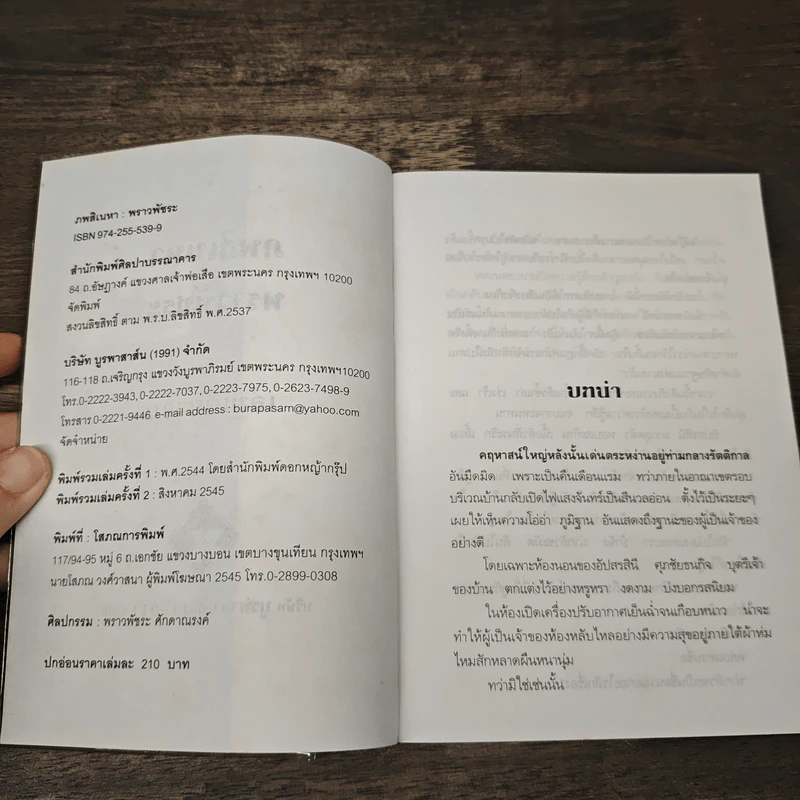 ภพสิเนหา : พราวพัชระ
ISBN 974-255-539-9
สำนักพิมพ์ศิลปาบรรณาคาร
84 ถ.อัษฎางค์ แขวงศาลเจ้าพ่อเสือ เขตพระนคร กรุงเทพฯ 10200
จัดพิมพ์
สงวนลิขสิทธิ์ ตาม พ.ร.บ.ลิขสิทธิ์ พ.ศ.2537
บริษัท บูรพาสาส์น (1991) จำกัด
116-118 ถ.เจริญกรุง แขวงวังบูรพาภิรมย์ เขตพระนคร กรุงเทพฯ10200
โทร.0-2222-3943, 0-2222-7037, 0-2223-7975, 0-2623-7498-9
โทรสาร 0-2221-9446 e-mail address : burapasarn@yahoo.com
จัดจำหน่าย
พิมพ์รวมเล่มครั้งที่ 1 : พ.ศ.2544 โดยสำนักพิมพ์ดอกหญ้ากรุ๊ป
พิมพ์รวมเล่มครั้งที่ 2 : สิงหาคม 2545
พิมพ์ที่ : โสภณการพิมพ์
117/94-95 หมู่ 6 ถ.เอกชัย แขวงบางบอน เขตบางขุนเทียน กรุงเทพฯ
นายโสภณ วงศ์วาสนา ผู้พิมพ์โฆษณา 2545 โทร.0-2899-0308
ศิลปกรรม : พราวพัชระ ศักดาณรงค์
ปกอ่อนราคาเล่มละ 210 บาท
บทนำ
คฤหาสน์ใหญ่หลังนั้นเด่นตระหง่านอยู่ท่ามกลางรัตติกาล
อันมืดมิด เพราะเป็นคืนเดือนแรม ทว่าภายในอาณาเขตรอบ
บริเวณบ้านกลับเปิดไฟแสงจันทร์เป็นสีนวลอ่อน ตั้งไว้เป็นระยะๆ
เผยให้เห็นความโอ่อ่า ภูมิฐาน อันแสดงถึงฐานะของผู้เป็นเจ้าของ
อย่างดี
โดยเฉพาะห้องนอนของอัปสรสินี ศุภชัยธนกิจ บุตรีเจ้า
ของบ้าน ตกแต่งไว้อย่างหรูหรา งดงาม บ่งบอกรสนิยม
ในห้องเปิดเครื่องปรับอากาศเย็นฉ่ำจนเกือบหนาว น่าจะ
ทำให้ผู้เป็นเจ้าของห้องหลับไหลอย่างมีความสุขอยู่ภายใต้ผ้าห่ม
ไหมสักหลาดผืนหนานุ่ม
ทว่ามิใช่เช่นนั้น